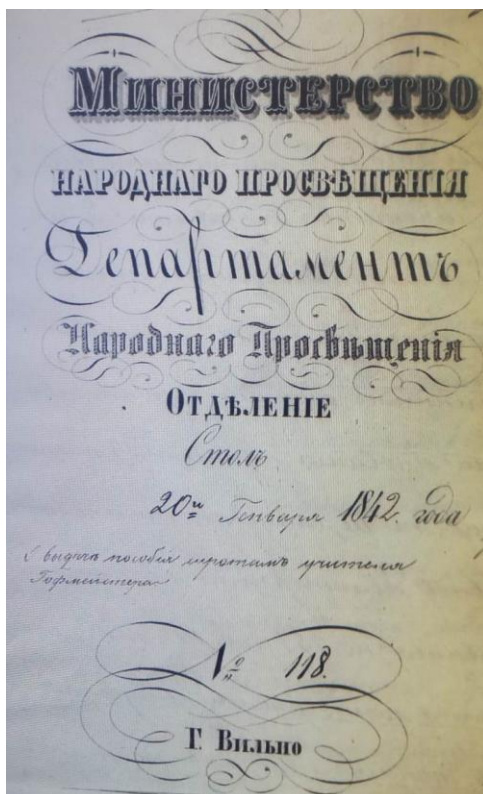 Министерство
НАРОДНАГО ПРОСВѢЩЕНІЯ
Департаментъ
Народнаго Просвѣщенія
ОТДѢЛЕНІЕ
Столъ
20го Генваря 1842. года
О выдачѣ пособія сиротамъ учителя
Гофмейстера
№ 118.
Г. Вильно